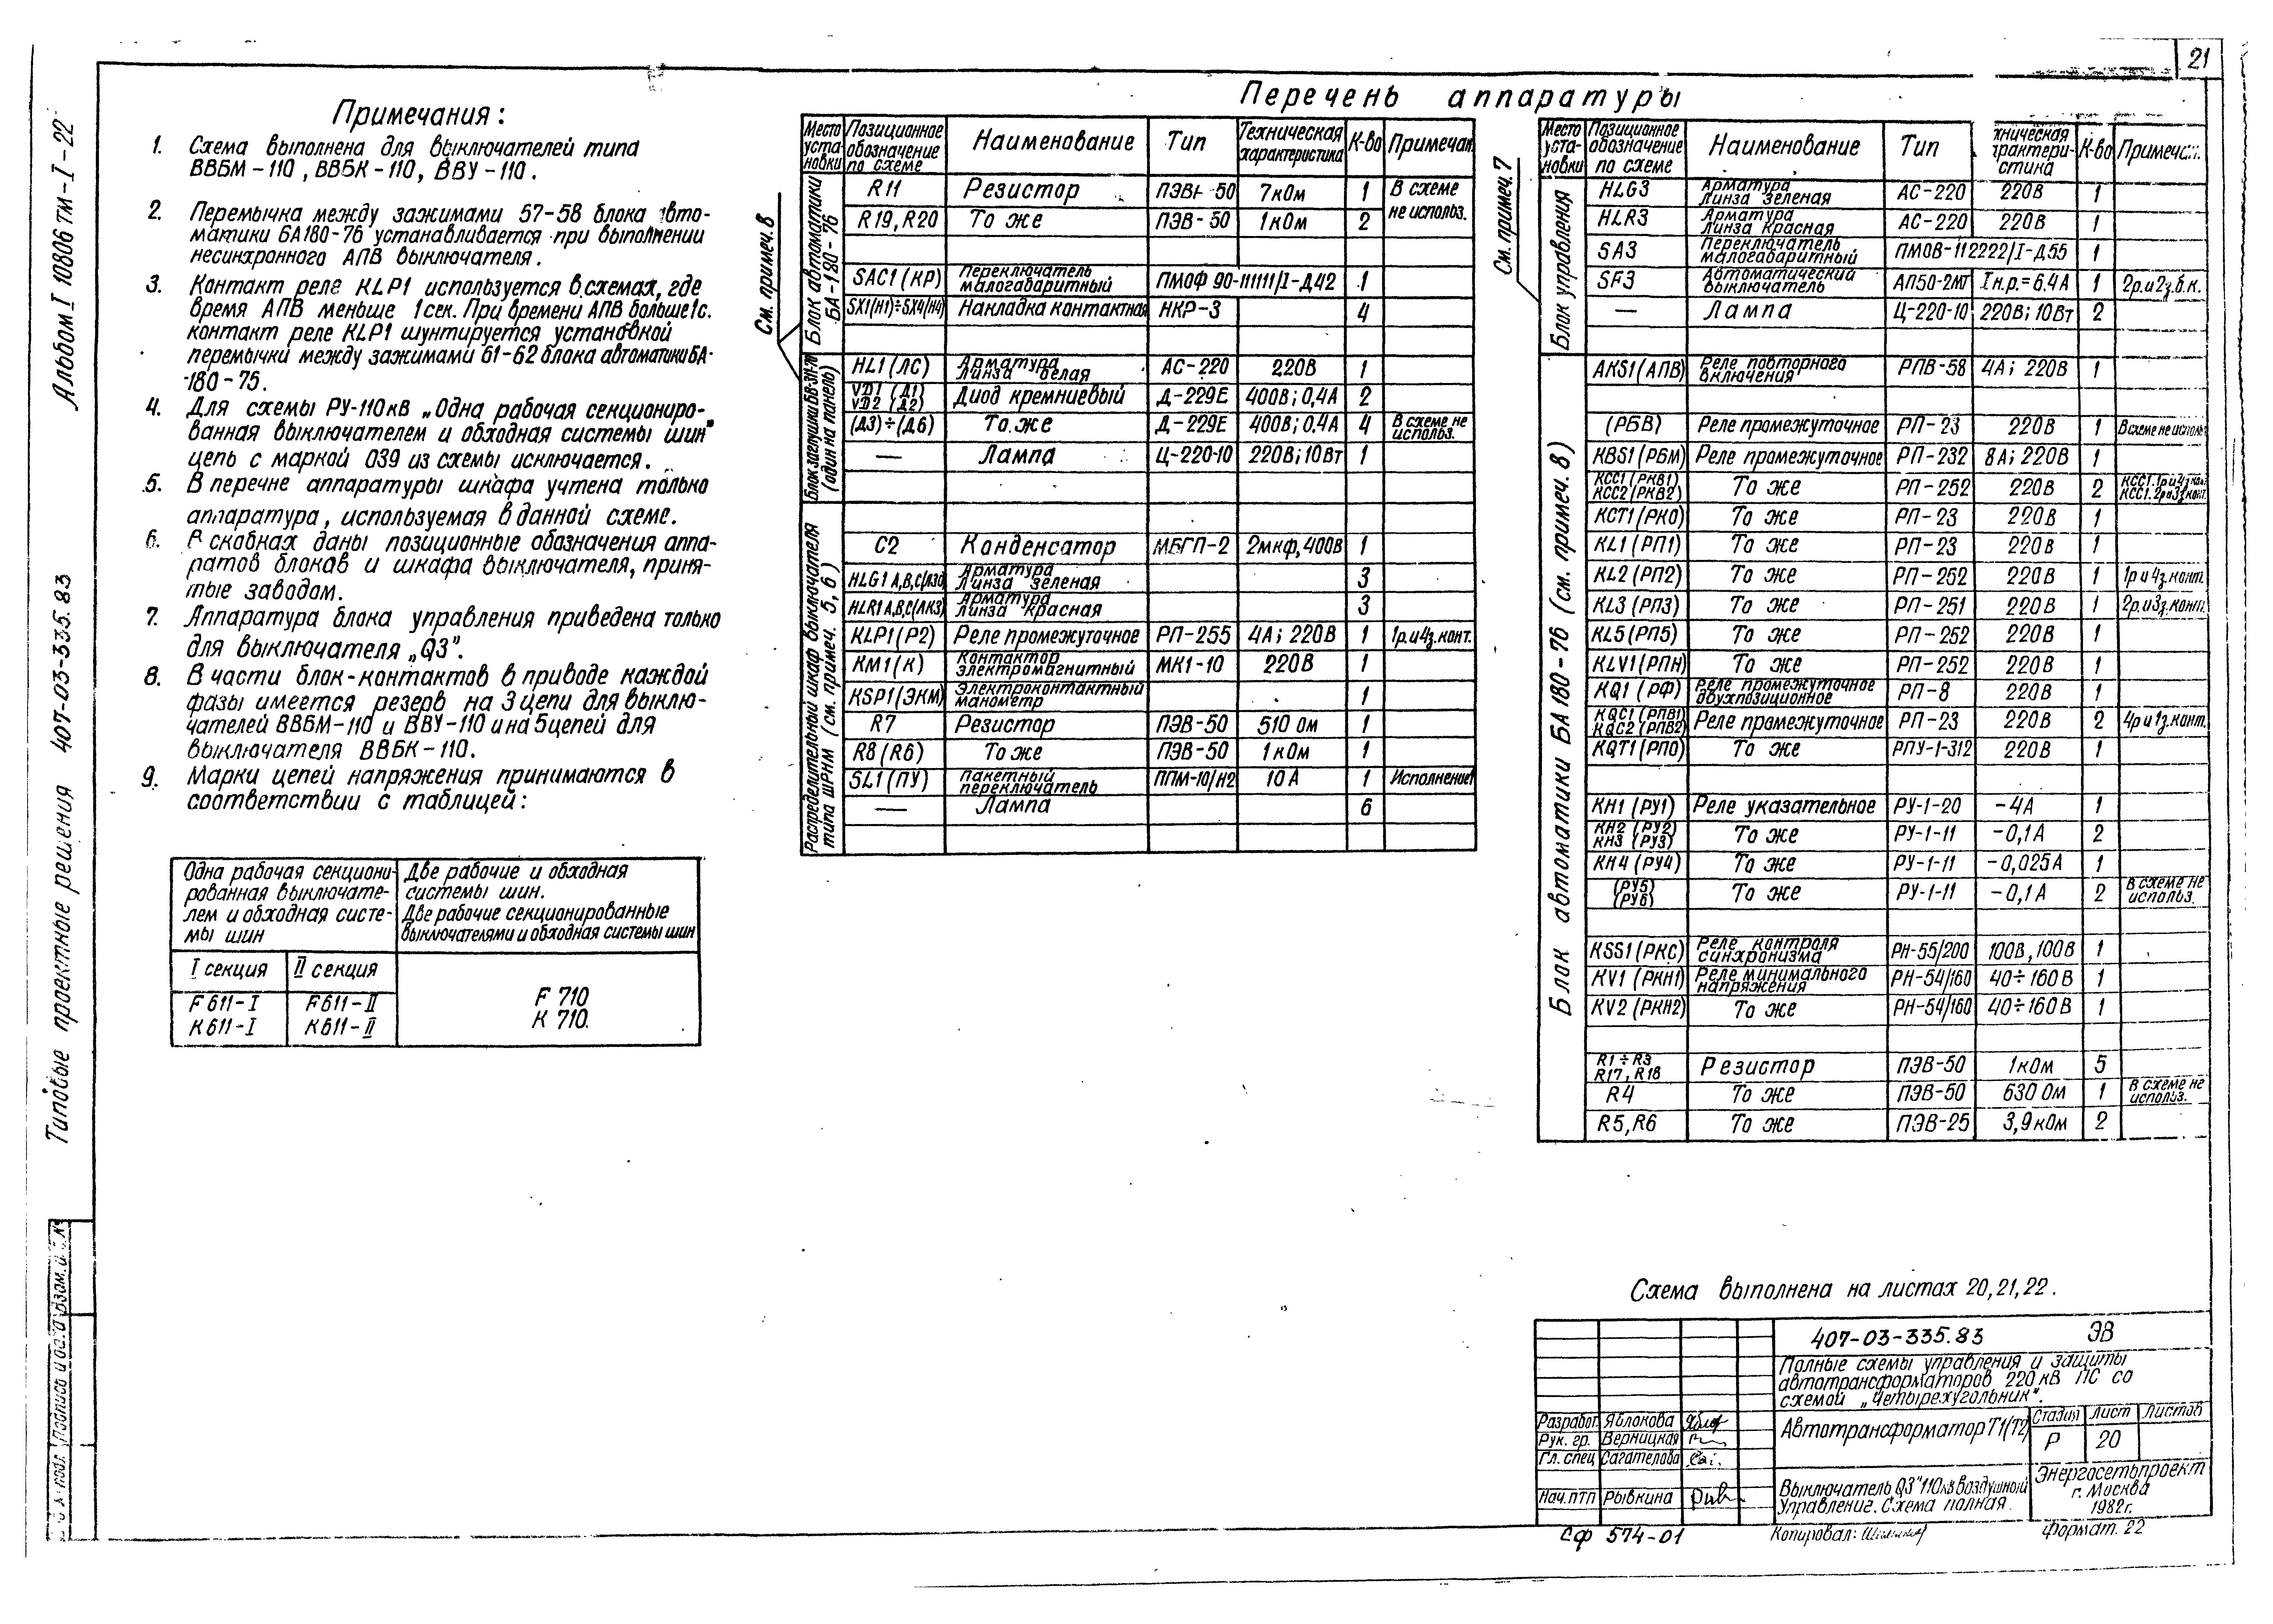 21
Альбом I 10806 тм-I-22
Типовые проектные решения 407-03-335.83
Примечания:
1. Схема выполнена для выключателей типа
ВВБМ-110, ВВБК-110, ВВУ-110.
2. Перемычка между зажимами 57-58 блока авто-
матики БА180-76 устанавливается при выполнении
несинхронного АПВ выключателя.
3. Контакт реле KLP1 используется в схемах, где
время АПВ меньше 1сек. При времени АПВ больше 1с.
контакт реле KLP1 шунтируется установкой
перемычки между зажимами 61-62 блока автоматики БА-
-180-75.
4. Для схемы РУ-110кВ „Одна рабочая секциониро-
ванная выключателем и обходная системы шин"
цепь с маркой 039 из схемы исключается.
5. В перечне аппаратуры шкафа учтена только
аппаратура, используемая в данной схеме.
6. В скобках даны позиционные обозначения аппа-
ратов блоков и шкафа выключателя, приня-
тые заводом.
7. Аппаратура блока управления приведена только
для выключателя „Q3".
8. В части блок-контактов в приводе каждой
фазы имеется резерв на 3 цепи для выклю-
чателей ВВБМ-110 и ВВУ-110 и на 5 цепей для
выключателя ВВБК-110.
9. Марки цепей напряжения принимаются в
соответствии с таблицей:
Одна рабочая секциони-
рованная выключате-
лем и обходная систе-
мы шин
Две рабочие и обходная
системы шин.
Две рабочие секционированные
выключателями и обходная системы шин
I секция II секция
F611-I F611-II
K611-I K611-II
F 710
K 710.
Перечень аппаратуры
См. примеч. 8
Место установки Позиционное обозначение по схеме Наименование Тип Техническая характеристика К-во Примечан.
Блок автоматики БА-180-76
R11 Резистор ПЭВ-50 7кОм 1 В схеме не использ.
R19, R20 То же ПЭВ-50 1кОм 2
SAC1 (КР) Переключатель малогабаритный ПМОФ 90-111111/I-Д42 1
SX1(Н1)÷SX4(Н4) Накладка контактная НКР-3 4
Блок заглушки БВ-311-70 (один на панель)
HL1 (ЛС) Арматура Линза белая АС-220 220В 1
VD1 (Д1) VD2 (Д2) Диод кремниевый Д-229Е 400В; 0,4А 2
(Д3)÷(Д6) То же Д-229Е 400В; 0.4А 4 В схеме не использ.
— Лампа Ц-220-10 220В; 10Вт 1
Распределительный шкаф выключателя типа ШРНМ (см. примеч. 5, 6)
С2 Конденсатор МБГП-2 2мкф, 400В 1
HLG1 A,B,C(ЛЗЗ) Арматура Линза зеленая 3
HLR1 A,B,C(ЛКЗ) Арматура Линза красная 3
KLP1 (Р2) Реле промежуточное РП-255 4А; 220В 1 1р.и4з.конт.
КМ1 (К) Контактор электромагнитный МК1-10 220В 1
KSP1 (ЭКМ) Электроконтактный манометр 1
R7 Резистор ПЭВ-50 510 Ом 1
R8 (R6) То же ПЭВ-50 1кОм 1
SL1 (ПУ) Пакетный переключатель ППМ-10/Н2 10А 1 Исполнение1
— Лампа 6
См. примеч. 7
Место установки Позиционное обозначение по схеме Наименование Тип хническая характеристика К-во Примечан.
Блок управления
HLG3 Арматура Линза зеленая АС-220 220В 1
HLR3 Арматура Линза красная АС-220 220В 1
SA3 Переключатель малогабаритный ПМОВ-112222/I-Д55 1
SF3 Автоматический выключатель АП50-2МТ Iн.р.=6.4А 1 2р.и2з.б.к.
— Лампа Ц-220-10 220В; 10Вт 2
Блок автоматики БА180-76 (см. примеч. 8)
AKS1 (АПВ) Реле повторного включения РПВ-58 4А; 220В 1
(РБВ) Реле промежуточное РП-23 220В 1 В схеме не использ.
KBS1 (РБМ) Реле промежуточное РП-232 8А; 220В 1
КСС1 (РКВ1) КСС2 (РКВ2) То же РП-252 220В 2 КСС1.1ри4з.кон. КСС1.2ри3з.конт.
КСТ1 (РКО) То же РП-23 220В 1
KL1 (РП1) То же РП-23 220В 1
KL2 (РП2) То же РП-252 220В 1 1р и 4з.конт.
KL3 (РП3) То же РП-251 220В 1 2р.и3з.конт.
KL5 (РП5) То же РП-252 220В 1
KLV1 (РПН) То же РП-252 220В 1
KQ1 (РФ) Реле промежуточное двухпозиционное РП-8 220В 1
KQC1 (РПВ1) KQC2 (РПВ2) Реле промежуточное РП-23 220В 2 4р и 1з.конт.
KQT1 (РПО) То же РПУ-1-312 220В 1
КН1 (РУ1) Реле указательное РУ-1-20 -4А 1
КН2 (РУ2) КН3 (РУ3) То же РУ-1-11 -0,1А 2
КН4 (РУ4) То же РУ-1-11 -0,025А 1
(РУ5) (РУ6) То же РУ-1-11 -0,1А 2 В схеме не использ.
KSS1 (РКС) Реле контроля синхронизма РН-55/200 100В, 100В 1
KV1 (РКН1) Реле минимального напряжения РН-54/160 40÷160В 1
KV2 (РКН2) То же РН-54/160 40÷160В 1
R1÷R3 R17, R18 Резистор ПЭВ-50 1кОм 5
R4 То же ПЭВ-50 630 Ом 1 В схеме не использ.
R5, R6 То же ПЭВ-25 3,9кОм 2
Схема выполнена на листах 20, 21, 22.
407-03-335.83 ЭВ
Полные схемы управления и защиты
автотрансформаторов 220кВ ПС со
схемой „Четырехугольник".
Разработ. Яблокова
Рук. гр. Верницкая
Гл. спец Сагателова
Нач.птп Рывкина
Автотрансформатор Т1(Т2)
Стадия Лист Листов
Р 20
Выключатель Q3"110кВ воздушный
Управление. Схема полная.
Энергосетьпроект
г. Москва
1982г.
Сф 574-01
Копировал:
Формат. 22
Подпись и дата Взам. и